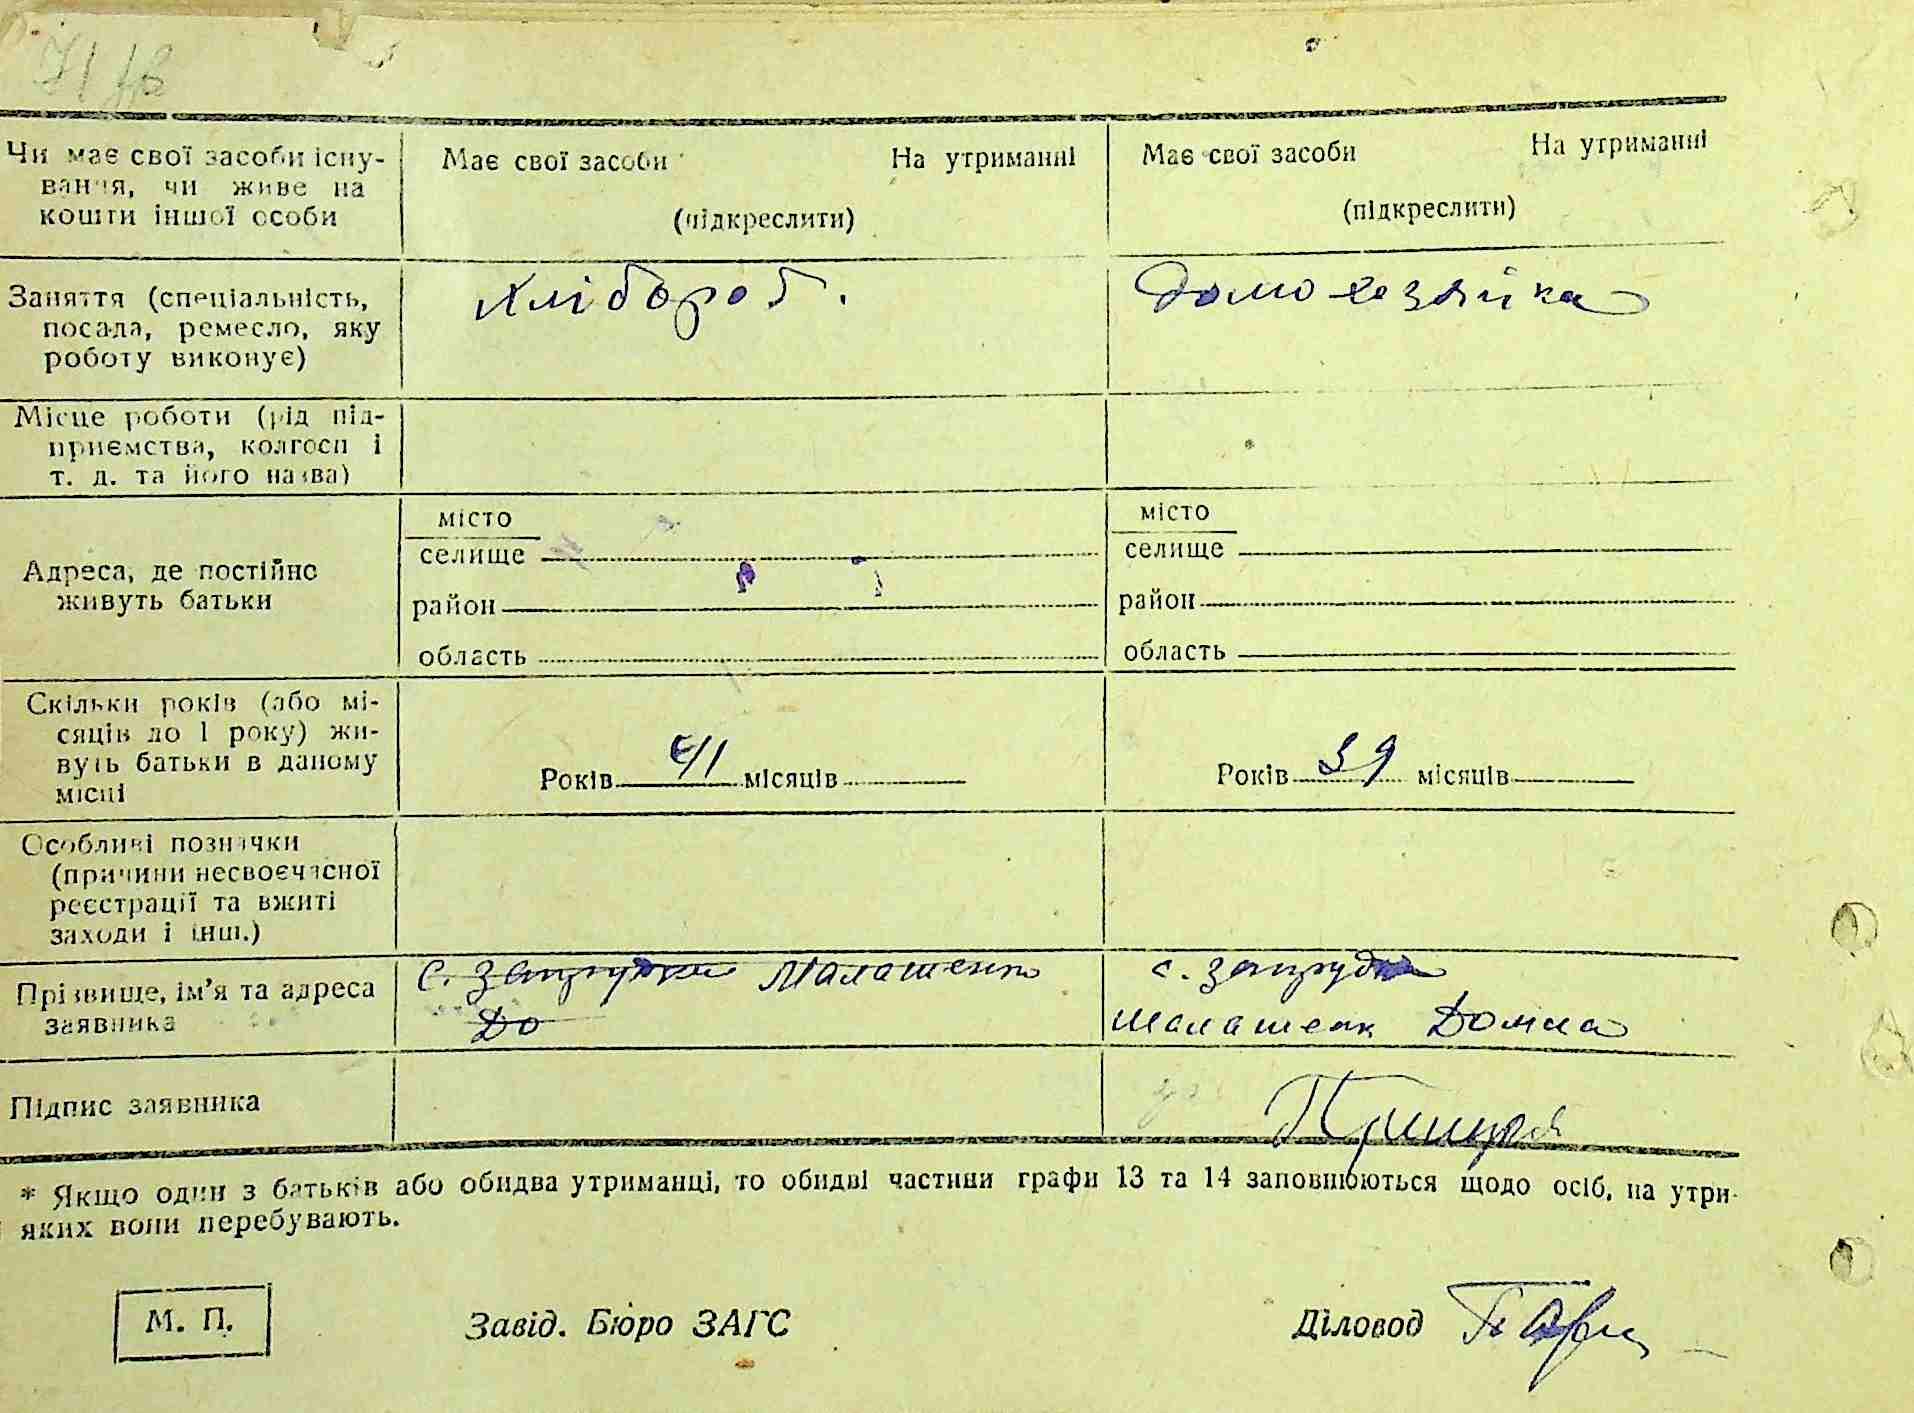 71 зв
Чи має свої засоби існу-
вання, чи живе на
кошти іншої особи
Має свої засоби На утриманні
(підкреслити)
Має свої засоби На утриманні
(підкреслити)
Заняття (спеціальність,
посада, ремесло, яку
роботу виконує)
Хлібороб.
Домохозяйка
Місце роботи (рід під-
приємства, колгосп і
т. д. та його назва)
Адреса, де постійно
живуть батьки
місто
селище
район
область
місто
селище
район
область
Скільки років (або мі-
сяців до 1 року) жи-
вуть батьки в даному
місці
Років 41 місяців
Років 39 місяців
Особливі позначки
(причини несвоєчасної
реєстрації та вжиті
заходи і інш.)
Прізвище, ім'я та адреса
заявника
с. Запрудка Малашенко
До
с. Запрудка
Малашенк Домна
Підпис заявника
* Якщо один з батьків або обидва утриманці, то обидві частини графи 13 та 14 заповнюються щодо осіб, на утри-
яких вони перебувають.
М. П.
Завід. Бюро ЗАГС
Діловод